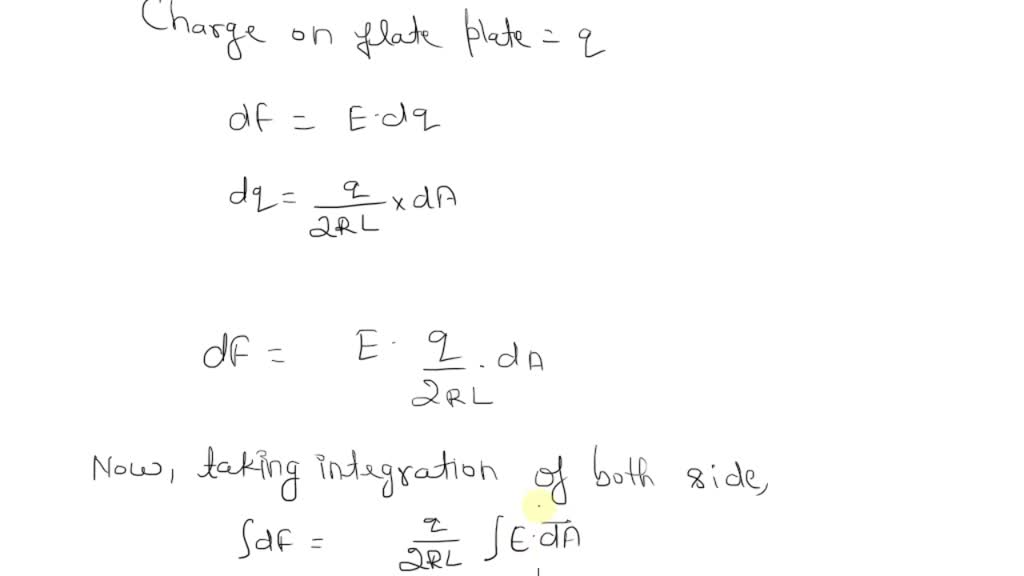 Charge on flate plate = q
dF = E·dq
dq = q/2RL × dA
dF = E · q/2RL · dA
Now, taking integration of both side,
∫dF = q/2RL ∫E·d̅A̅